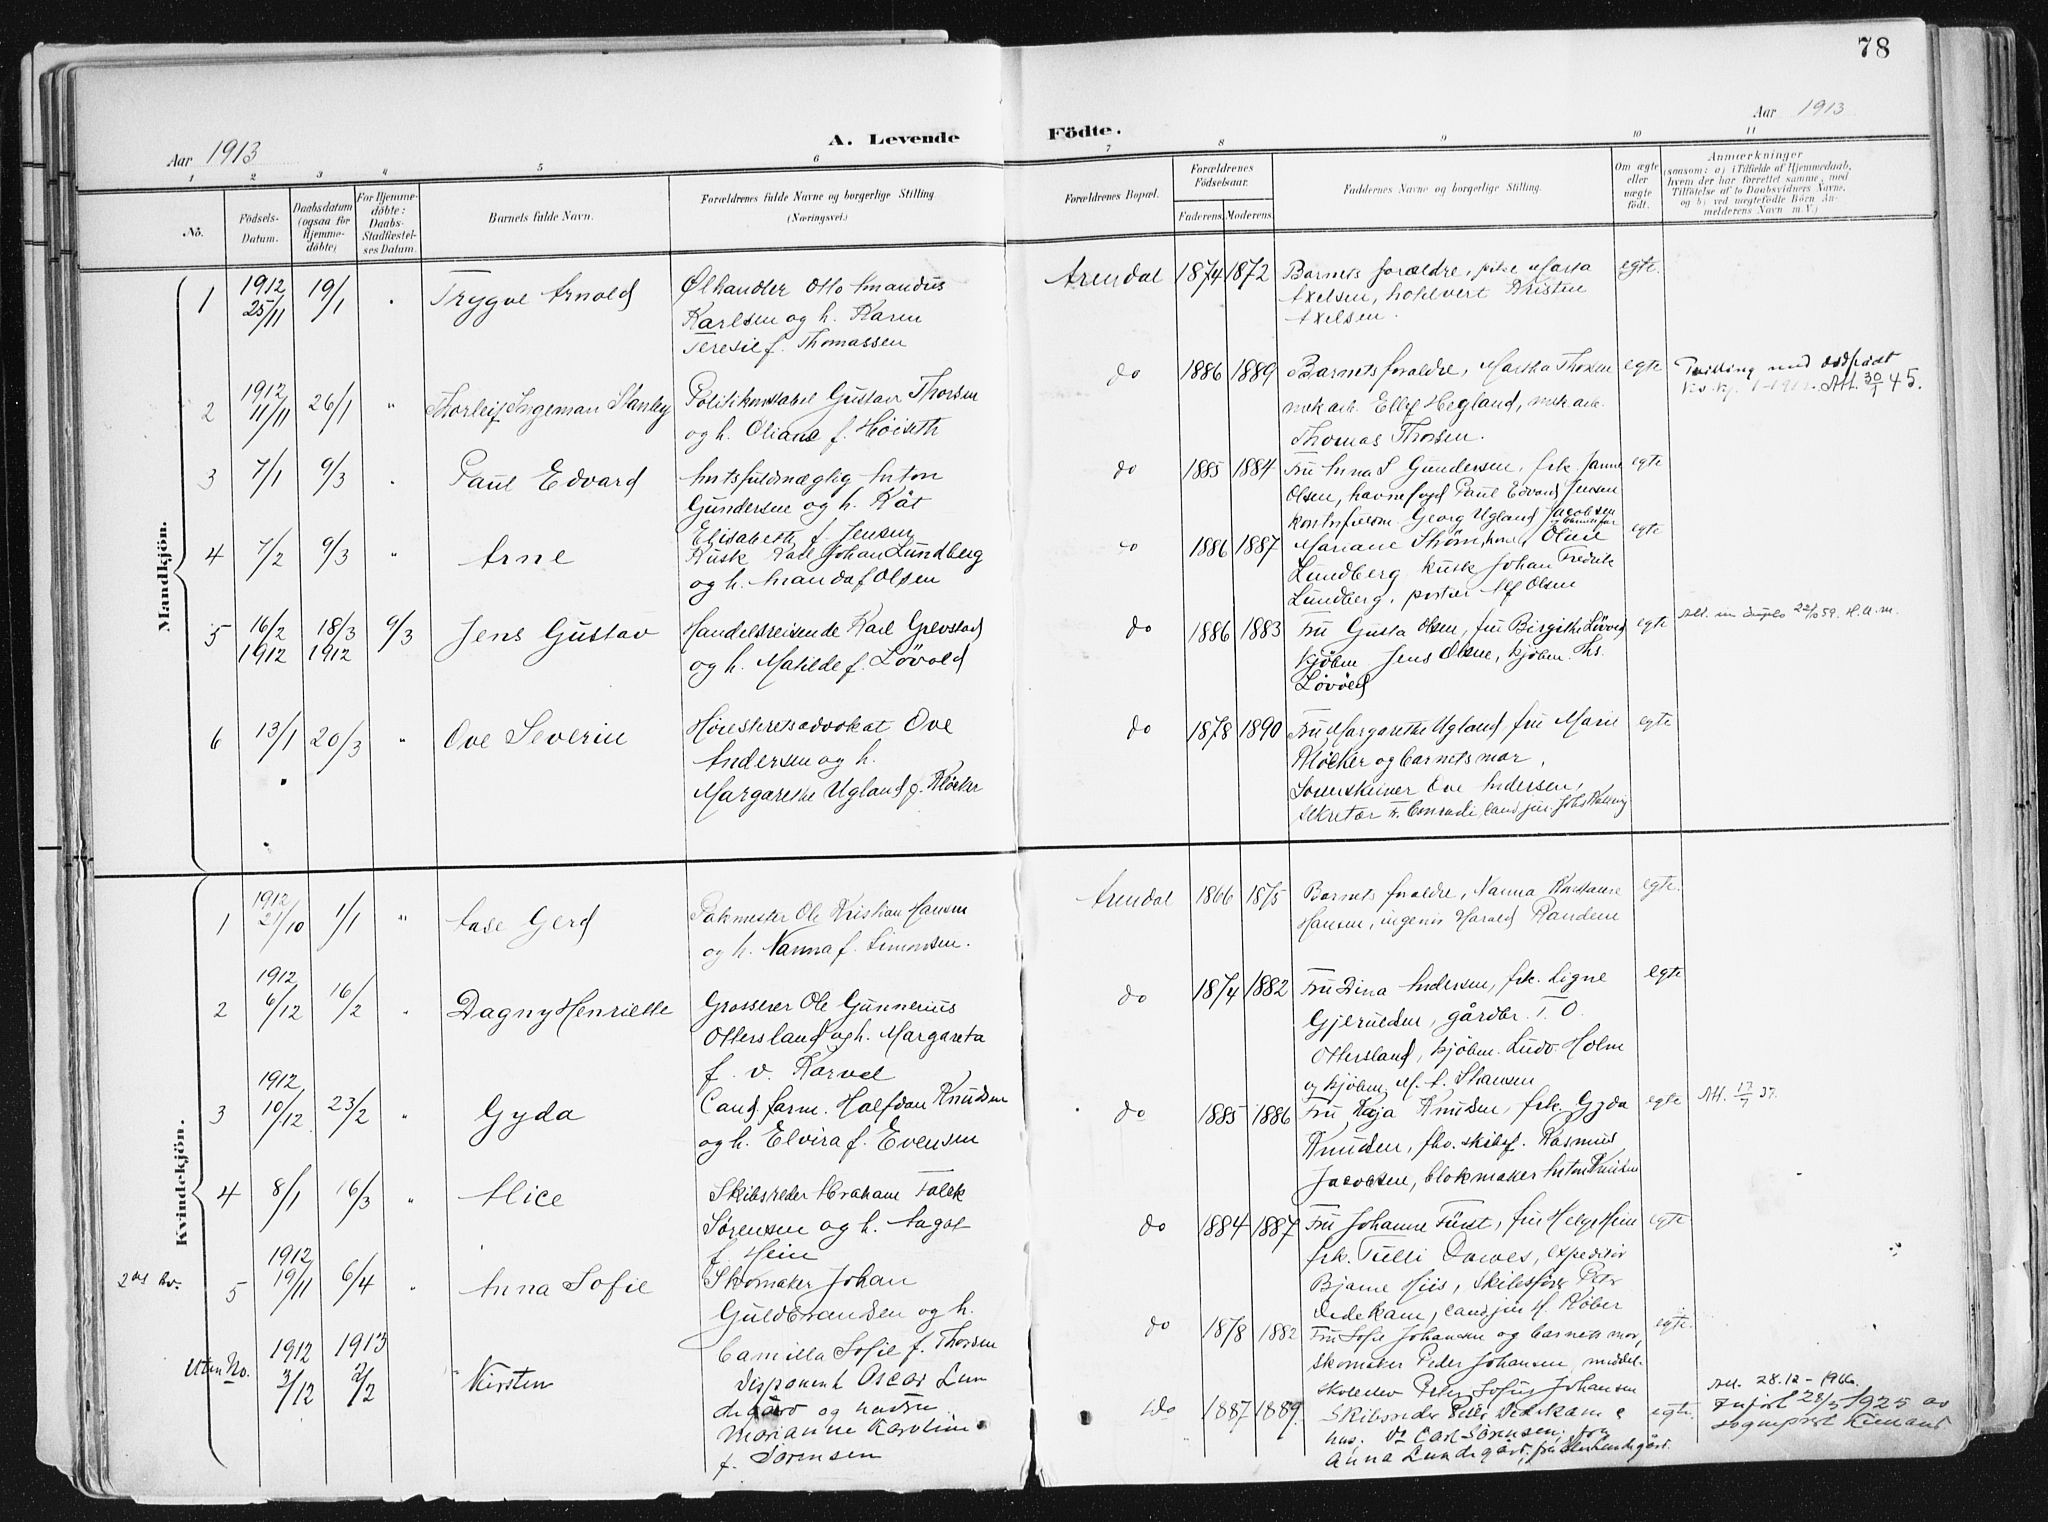 78
Aar 1913
A. Levende Födte.
Aar 1913
1 2 3 4 5 6 7 8 9 10 11
No.
Födsels-Datum.
Daabsdatum (ogsaa for Hjemmedöbte)
For Hjemmedöbte: Daabs-Stadfæstelses Datum.
Barnets fulde Navn.
Forældrenes fulde Navne og borgerlige Stilling (Næringsvei.)
Forældrenes Bopæl.
Forældrenes Födselsaar.
Faderens. Moderens.
Faddernes Navne og borgerlige Stilling.
Om ægte eller uægte födt.
Anmærkninger
(saasom: a) i Tilfælde af Hjemmedaab, hvem der har forrettet samme, med Tilföielse af to Daabsvidners Navne, og b) ved uægtefödte Börn Anmelderens Navn m. V.)
Mandkjön.
1 1912 25/11 19/1 " Trygve Arnold
Ølhandler Otto Amandus
Karlsen og h. Karen
Teresie f. Thomassen
Arendal 1874 1872
Barnets forældre, pike Marta
Axelsen, holdvert Kristen
Axelsen.
egte.
2 1912 11/11 26/1 " Thorleif Ingeman Stanley
Politikonstabel Gustav Thorsen
og h. Oliane f. Høiseth
do 1886 1889
Barnets forældre, Martha Thorsen
mek arb. Ellef Hegland, mek arb.
Thomas Thorsen.
egte
Tvilling med dødfødt
Att. 30/1 45.
3 7/1 9/3 " Paul Edvard
Amtsfuldmægtig Anton
Gundersen og h. Kåt
Elisabeth f. Jensen
do 1885 1884
Fru Anna S Gundersen, frk. Janna
Olsen, havnefogd Paul Edvard Jensen
Georg Ugland Jacobsen
egte
4 7/2 9/3 " Arne
Kusk Karl Johan Lundberg
og h. Amanda f Olsen
do 1886 1887
Mariane Strøm, Oline
Lundberg kusk Johan Fredrik
Lundberg, portier Alf Olsen
egte
5 16/2 1912 18/3 1912 9/3 Jens Gustav
Handelsreisende Karl Grevstad
og h. Matilde f. Løvold
do 1886 1883
Fru Gusta Olsen, fru Birgithe Løvold
kjøbm Jens Olsen, kjøbm. Ths.
Løvold
egte
Att. 22/10 59. H.A.M.
6 13/1 20/3 " Ove Severin
Høiesteretsadvokat Ove
Andersen og h.
Margarethe Ugland f. Kløcker
do 1878 1890
Fru Margarethe Ugland, fru Marie
Kløcker og barnets mor,
Sorenskriver Ove Andersen,
Sekretær F. Conradi, cand jur. Johs
egte
Kvindekjön.
1 1912 21/10 1/1 " Aase Gerd
Pakmester Ole Kristian Hansen
og h. Nanna f. Simonsen.
Arendal 1866 1875
Barnets forældre, Nanna Konstanse
Hansen, ingeniø Harald Randem
egte.
2 1912 6/12 16/2 " Dagny Henriette
Grosserer Ole Gunnerius
Ottersland og h. Margareta
f. v. Karvel
do 1874 1882
Fru Dina Andersen, frk. Signe
Gjeruldsen, gårdbr. T. O.
Ottersland, kjøbm. Ludv. Holm
og kjøbm. M. A. Stansen
egte
3 1912 10/12 23/2 " Gyda
Cand. farm. Halfdan Knudsen
og h. Elvira f. Evensen
do 1885 1886
Fru Kaja Knudsen, frk. Gyda
Knudsen, fhv. skibsf. Rasmus
Jacobsen, blokmaker Anton Knudsen
egte
Att. 17/7 37.
4 8/1 16/3 " Alice
Skibsreder Abraham Falck
Sørensen og h. Aagot
f. Hein
do 1884 1887
Fru Johanne Fürst, fru Helga Hein
frk. Tulli Dawes, expeditør
Bjarne Hiis, Skibsfører Peter
Dedekam, cand jur H. Køber
egte
2det kv.
5 1912 19/11 6/4 " Anna Sofie
Skomaker Johan
Guldbrandsen og h.
Camilla Sofie f. Thorsen
do 1878 1882
Fru Sofie Johansen og barnets mor,
skomaker Peder Johansen, middel-
skoleelev Peter Sofus Johansen
egte.
Uten No. 1912 3/12 1913 2/2 " Kirsten
Disponent Oscar Lun
degård og hustru
Marianne Karoline
f. Sørensen
do 1887 1889.
Skibsreder Peter Dedekam &
hus. Dr Carl Sørensen, frk
Anna Lundegård,
egte.
Att. 28.12-1966.
Indført 28/5 1925 av
sogneprest